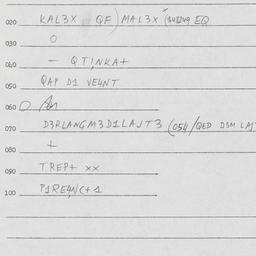 020 KAL3X QF) MAL3X EQ
030 O
040 – QTINKA+
050 QAP D1 VE4NT
060
070 D3RLANGM3D1LAJT3 (054/QED D3M LAJ
080 +
090 TREP+ xx
100 P1RE4N/C+ 1